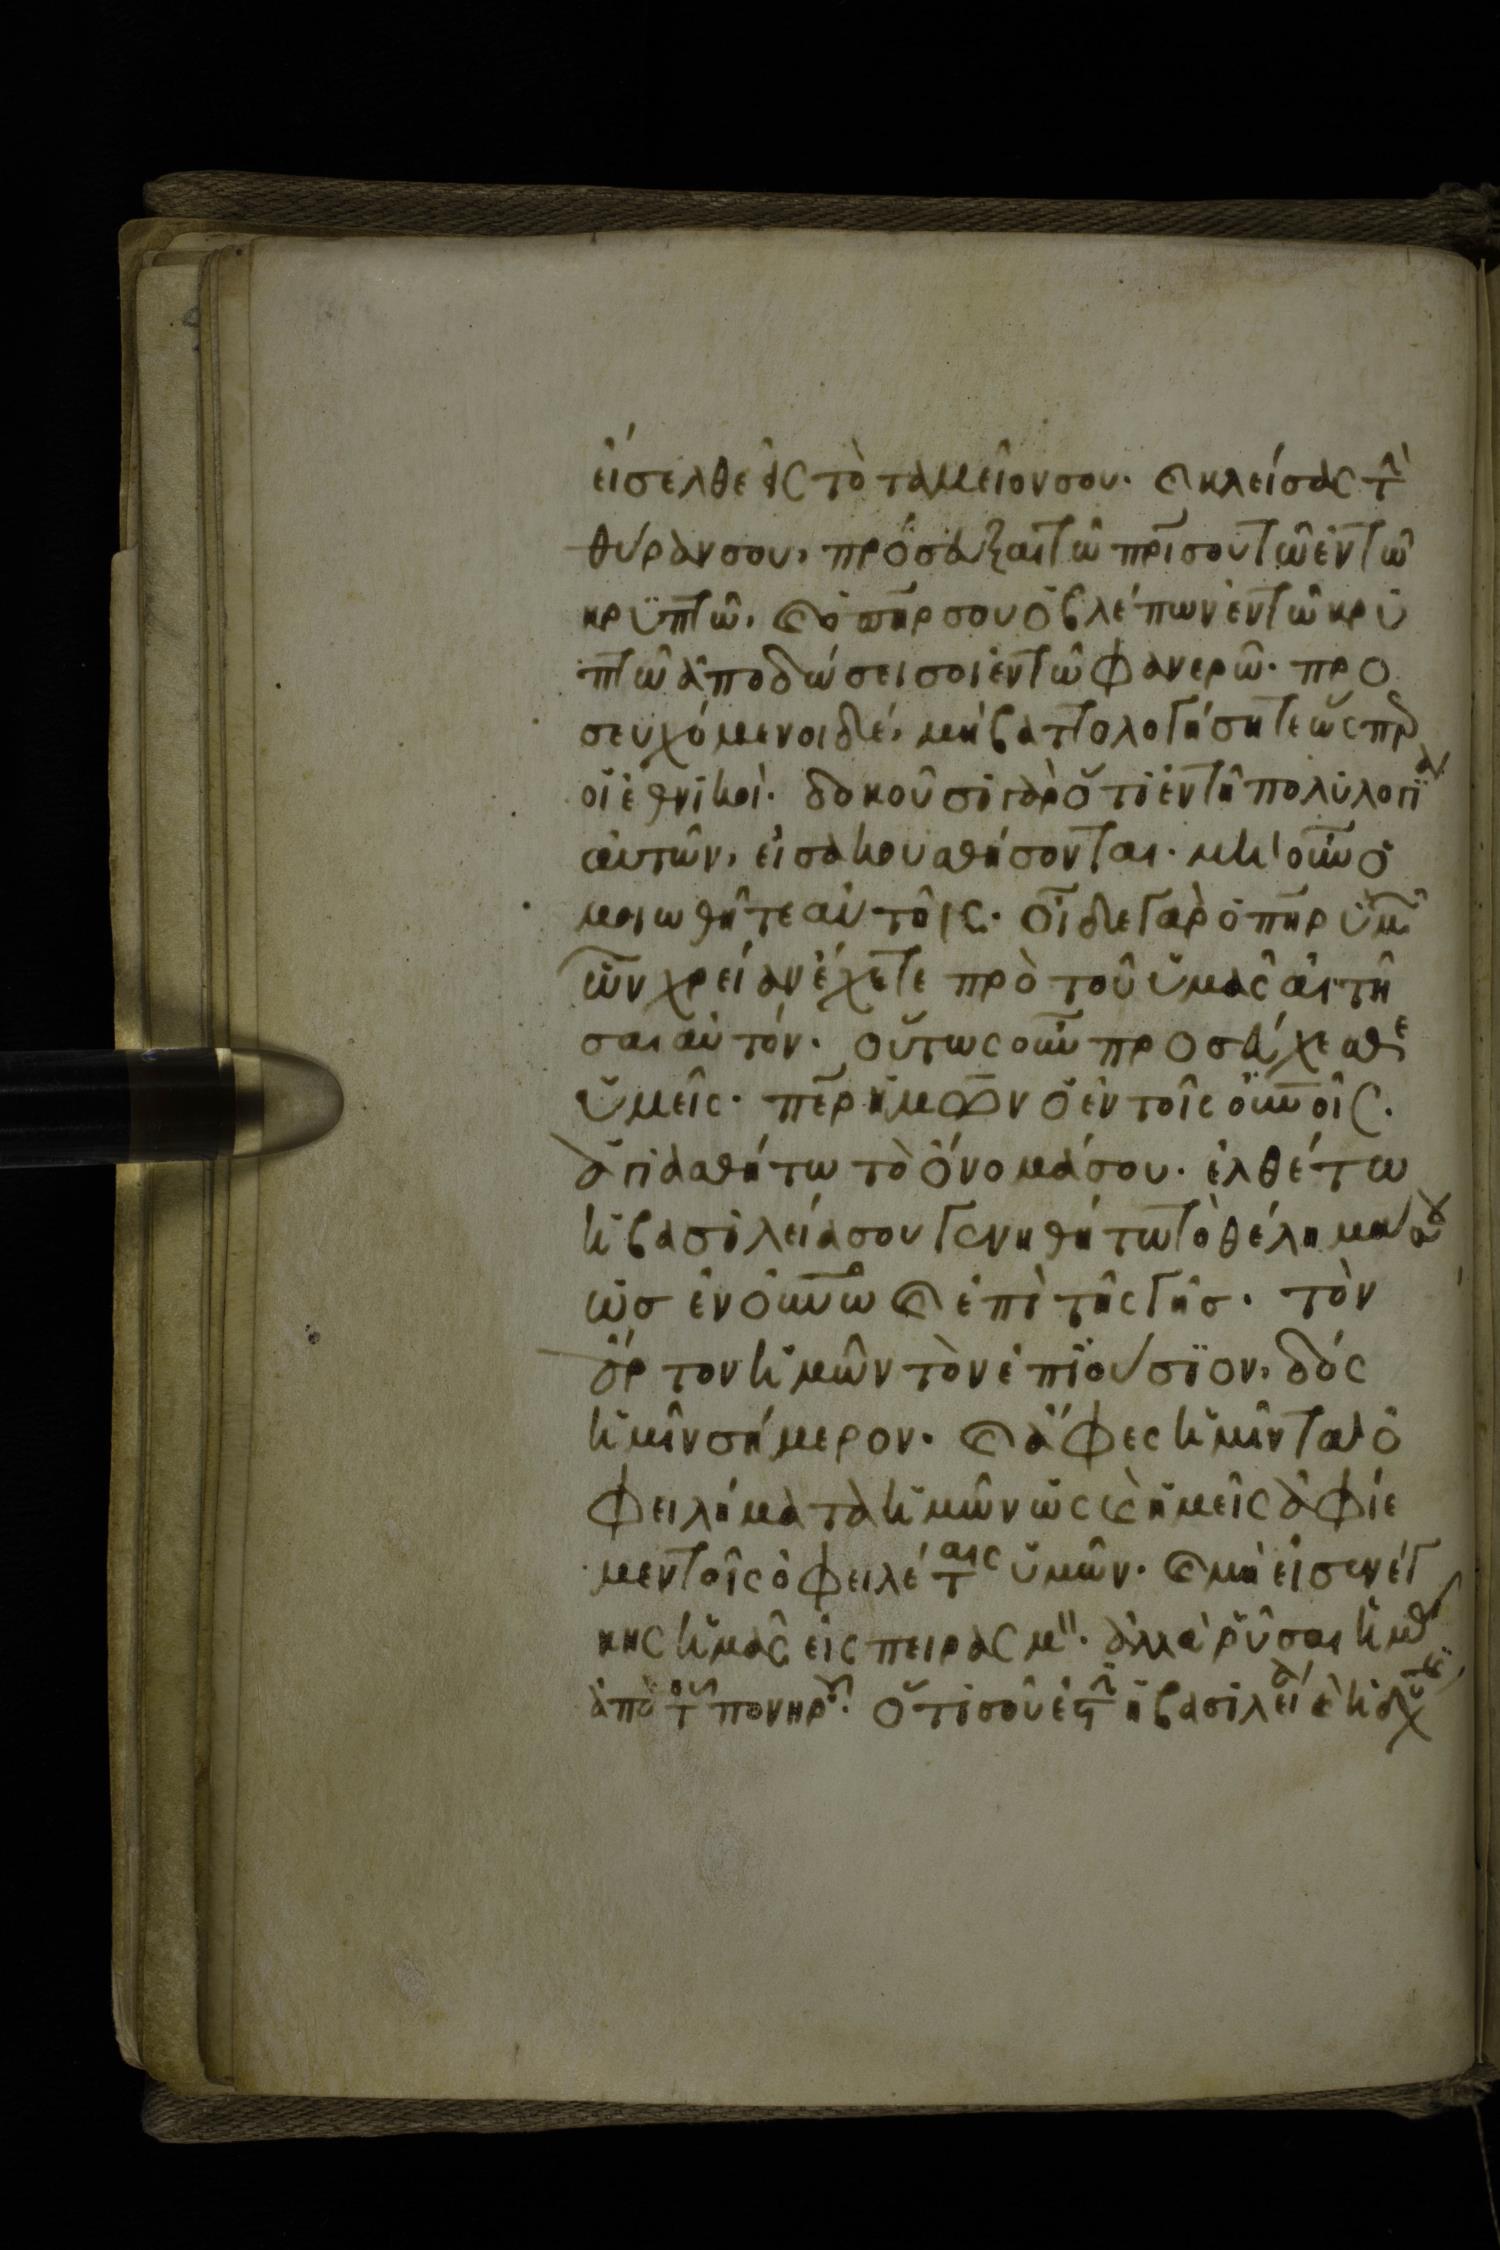 εἴσελθε εἰς τὸ ταμεῖον σου. καὶ κλείσας τὴν
θύραν σου, πρόσευξαι τῶ πρι σου τῶ ἐν τῶ
κρϋπτῶ, καὶ ὁ πηρ σου ὁ βλέπων ἐν τῶ κρϋ
πτῶ ἀποδώσει σοι ἐν τῶ φανερῶ. προ
σευχόμενοι δὲ, μὴ βαττολογήσητε ὥσπερ
οἱ ἐθνϊκοὶ. δοκοῦσι γὰρ ὅτι ἐν τῆ πολυλογία
αὐτῶν, εἰσακουσθήσονται. μὴ οὖν ὁ
μοιωθῆτε αὐτοῖς. οἶδε γὰρ ὁ πηρ ὑμῶν
ὧν χρείαν ἔχετε πρὸ τοῦ ὑμᾶς αἰτῆ
σαι αὐτόν. οὕτως οὖν προσεύχεσθε
ὑμεῖς. περ ἡμῶν ὁ ἐν τοῖς οὐνοῖς.
ἁγιασθήτω τὸ ὄνομά σου. ἐλθέτω
ἡ βασιλεία σου γενηθήτω τὸ θέλημά σου
ὡσ ἐν οὐνῶ καὶ ἐπὶ τῆς γῆσ. τὸν
ἄρτον ἡμῶν τὸν ἐπϊούσϊον, δός
ἡμῖν σήμερον. καὶ ἄφες ἡμῖν τὰ ὀ
φειλήματα ἡμῶν ὡς καὶ ἡμεῖς ἀφίε
μεν τοῖς ὀφειλέταις ὑμῶν. καὶ μὴ εἰσενέγ
κης ἡμᾶς εἰς πειρασμὸν. ἀλλὰ ῥῦσαι ἡμᾶς
ἀπὸ τοῦ πονηροῦ. ὅτι σοῦ ἐστὶν ἡ βασιλεία καὶ ἡ